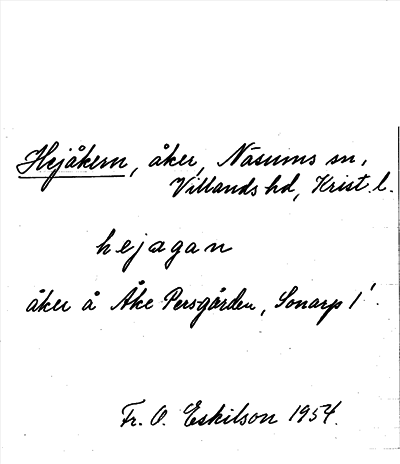 Hejåkern, åker, Näsums sn,
Villands hd, Krist. l.
hejagan
åker å Åke Persgården, Sonarp 1'.
Fr. O. Eskilson 1954.